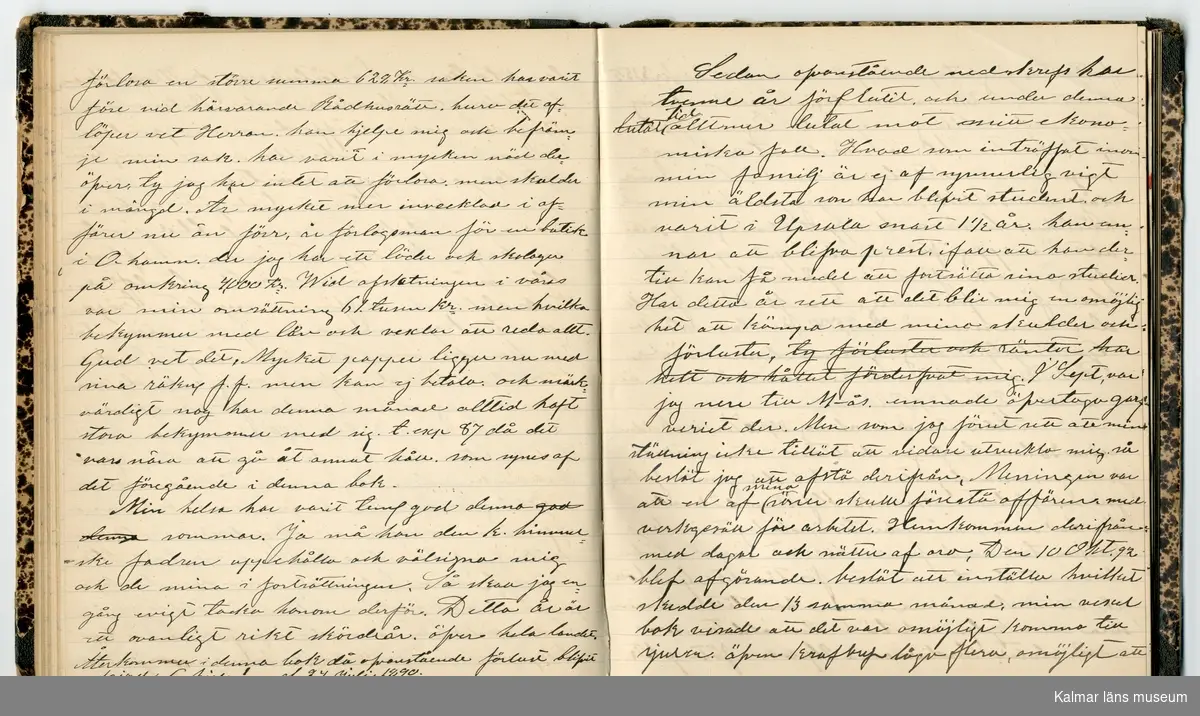 förlora en större summa 629 Kr. saken har varit
före vid härvarande Rådhusrätt. huru det af-
löper vet Herran. han hjelpe mig och befräm-
je min sak. har varit i mycken nöd der-
öfver, ty jag har intet att förlora. men skulder
i mängd. Är mycket mer invecklad i af-
färer nu än förr, är förlagsman för en butik
i O.hamn. der jag har ett läder och skolager
på omkring 4000 Kr. Wid afslutningen i våras
var min omsättning 61 tusen kr. men hvilka
bekymmer med lån och vexlar att reda allt.
Gud vet det. Mycket papper ligger nu med
sina räkng f.f. men kan ej betala. och märk-
värdigt nog har denna månad alltid haft
stora bekymmer med sig. t. exp 87 då det
var nära att gå åt annat håll. som synes af
det föregående i denna bok.
Min helsa har varit temg god denna god
denna sommar. Ja må han den k. himmel-
ske fadren uppehålla och välsigna mig
och de mina i fortsättningen. Så skall jag en
gång evigt tacka honom derför. Detta år är
ett ovanligt rikt skördeår. öfver hela landet.
Återkommer i denna bok då ofvanstående förlust blifvit
24 Juli 1890.
Sedan ofvanstående nedskrefs har
tvenne år förflutit, och under denna
lutat tid alltmer lutat mot mitt ekono-
miska fall. Hvad som inträffat inom
min familj är ej af synnerlig vigt
min äldsta son har blifvit student. och
varit i Upsala snart 1 1/2 år. han äm-
nar att blifva prest, i fall att han der-
till kan få medel att fortsätta sina studier.
Har detta år sett att det blir mig en omöjlig
het att kämpa med mina skulder och
förluster, ty förluster och räntor har
helt och hållet förderfvat mig. I Sept. var
jag nere till M-ås. ämnade öfvertaga gar-
veriet der. Men som jag först sett att min
ställning icke tillät att vidare utveckla mig, så
beslöt jag att afstå derifrån. Meningen var
att en af mina söner skulle förestå affären. med
verkgesäll för arbetet. Hemkommen derifrån
med dagar och nätter af oro. Den 10 Okt. 92
blef afgörande. beslöt att inställa hvilket
skedde den 13 samma månad. min vexel
bok visade att det var omöjligt komma till
rätta. öfven krafbref låga flera, omöjligt att
Kalmar läns museum